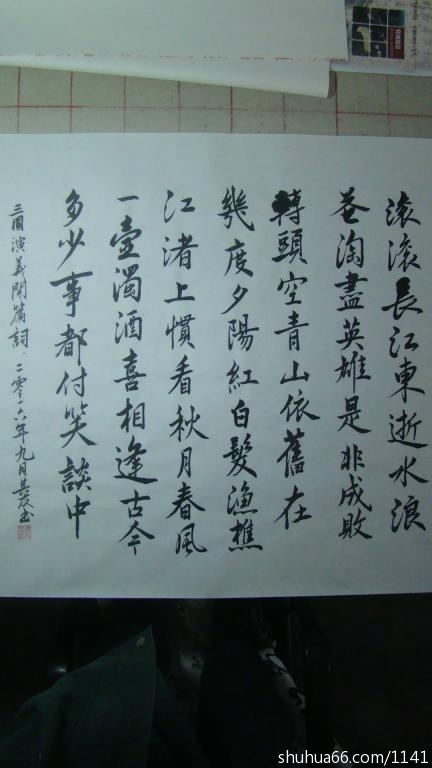 滚滚長江東逝水浪
花淘盡英雄是非成敗
轉頭空青山依舊在
幾度夕陽紅白髮漁樵
江渚上慣看秋月春風
一壺濁酒喜相逢古今
多少事都付笑談中
三國演義開篇詞.二零一六年九月
shuhua66.com/1141